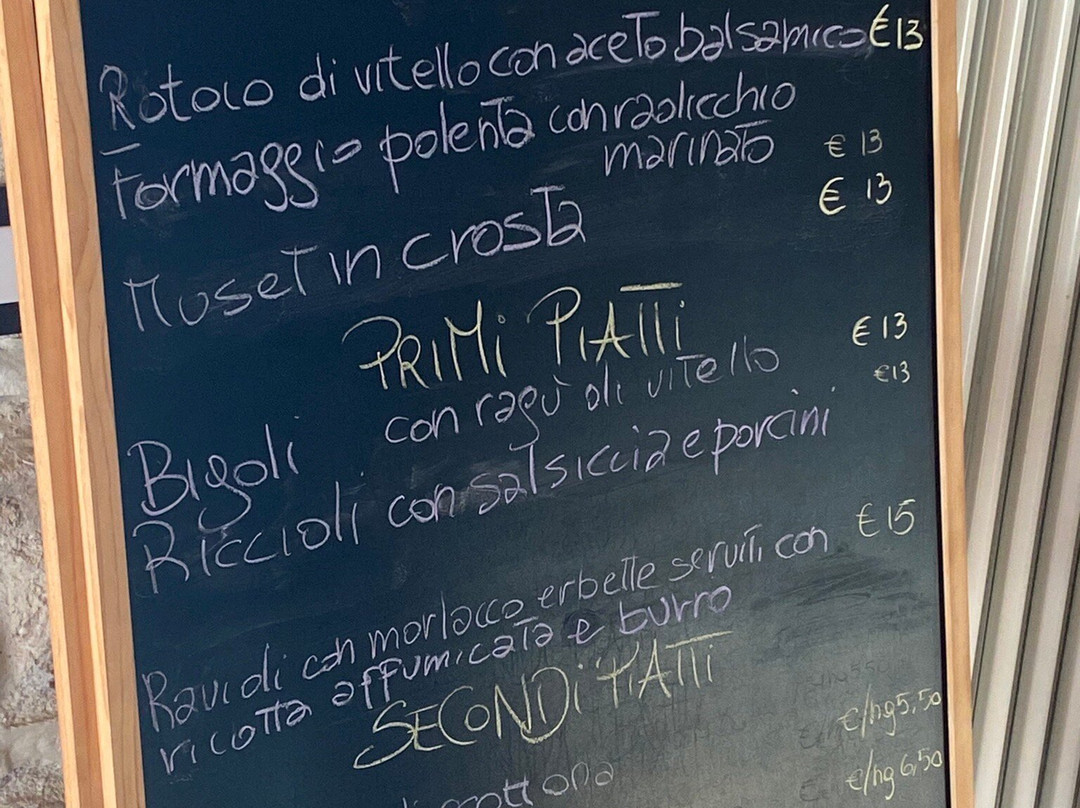 Rotolo di vitello con aceto balsamico €13
Formaggio polenta con radicchio
marinato € 13
Muset in crosta € 13
PRIMI PIATTI
Bigoli con ragù di vitello € 13
Riccioli con salsiccia e porcini €13
Ravioli con morlacco erbette serviti con € 15
ricotta affumicata e burro
SECONDI PIATTI
€/hg 5,50
€/hg 6,50